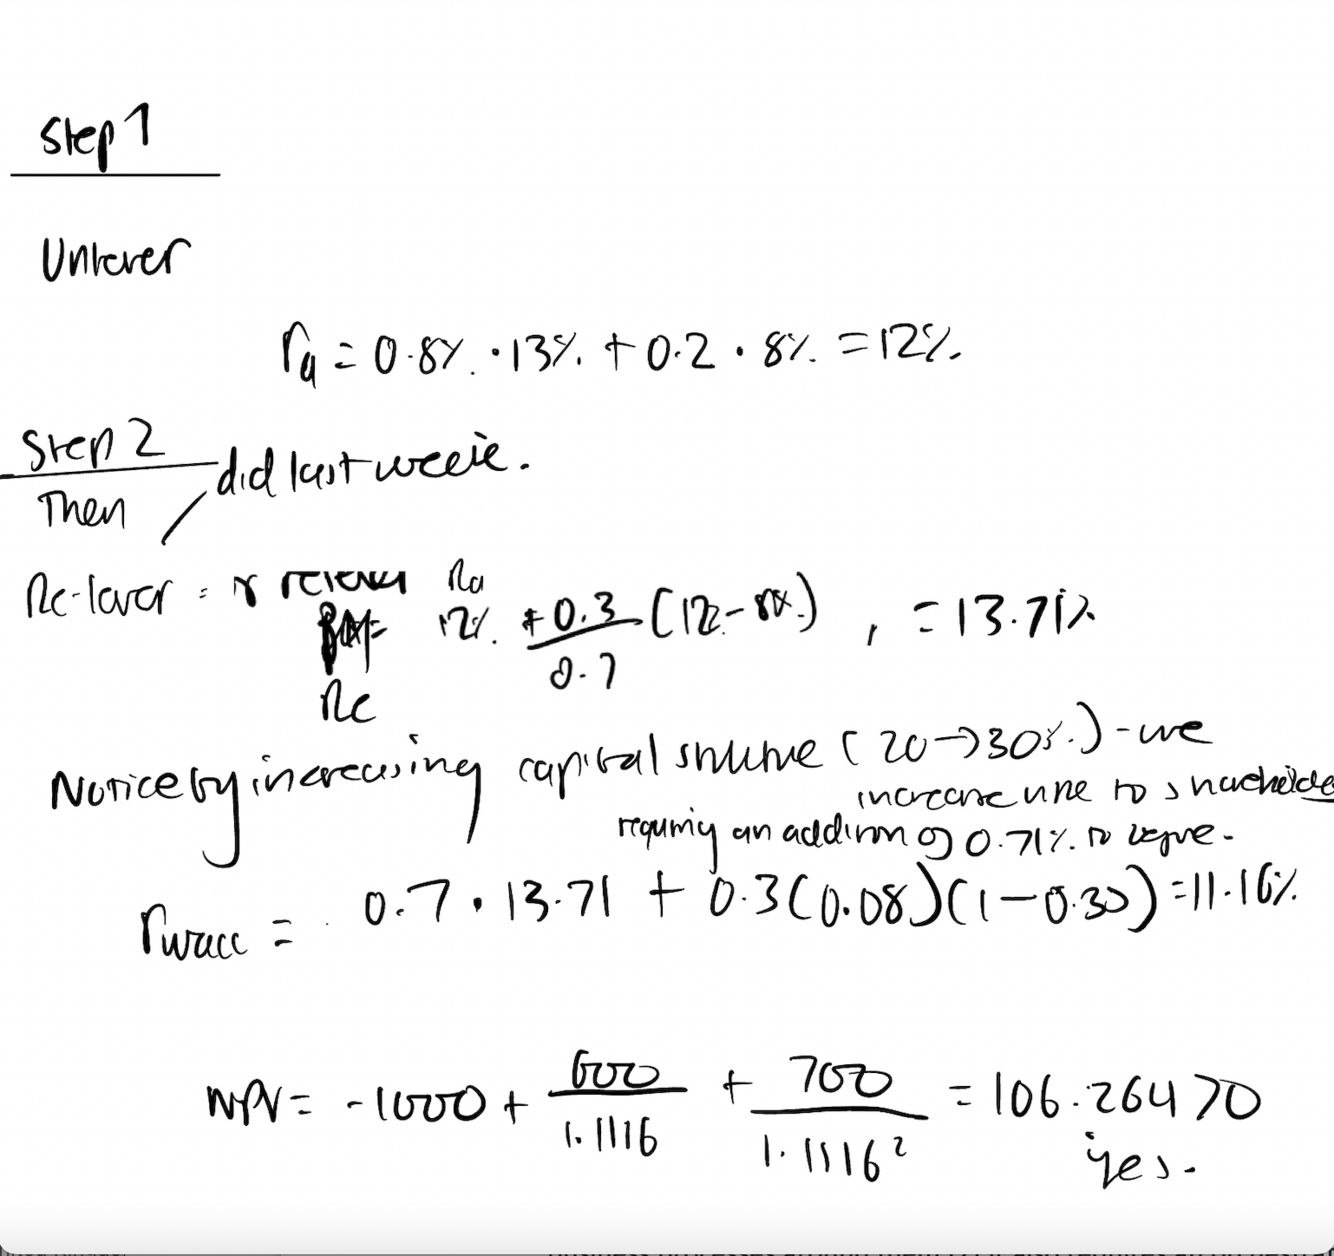 Step 1
Unlever
ra = 0.8% · 13% + 0.2 · 8% = 12%.
Step 2
did last week.
Then
Re-lever = r relever Ra
12% + 0.3/0.7 (12% - 8%) , = 13.71%
Re
Notice by increasing capital structure (20→30%) - we
increase to shareholders
requring an addition of 0.71% to
rwacc = 0.7 · 13.71 + 0.3(0.08)(1-0.30) = 11.16%
NPV = -1000 + 600/1.1116 + 700/1.1116² = 106.264 > 0
yes.